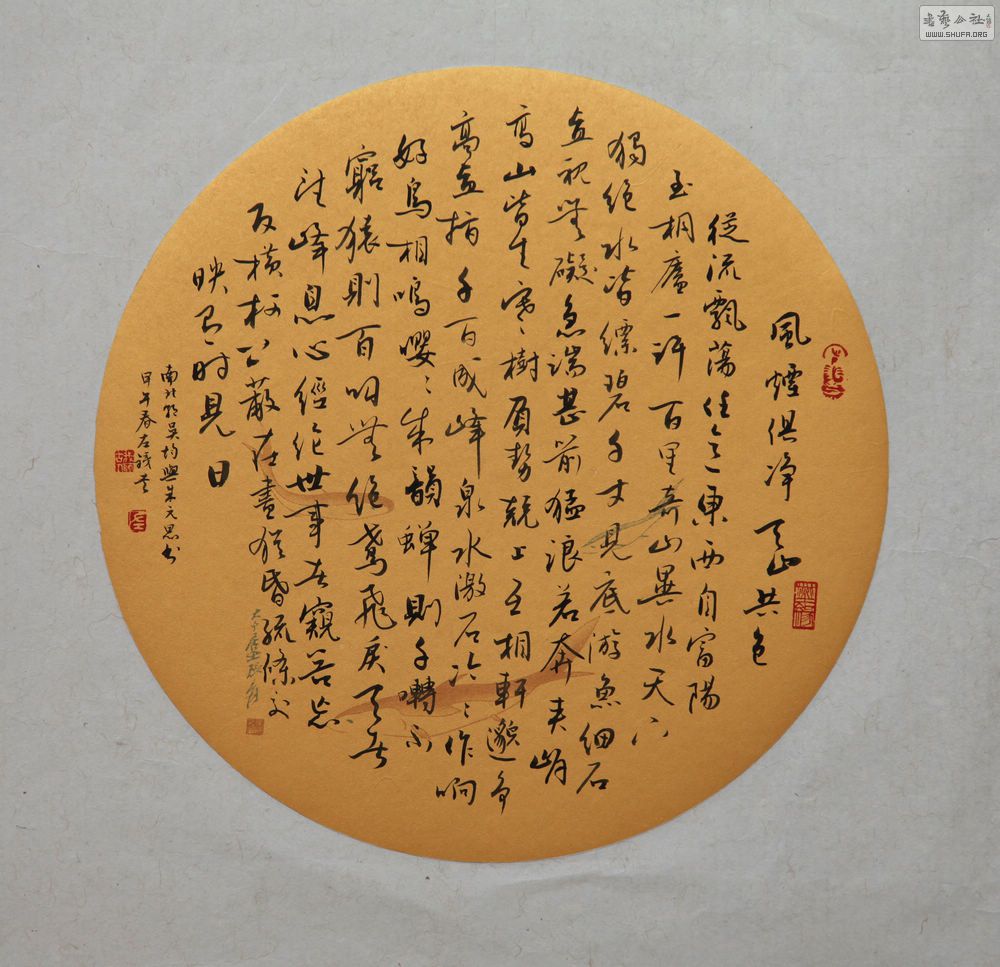 書藝公社
WWW.SHUFA.ORG
風煙俱净天山共色
從流飄蕩任意東西自富陽
至桐廬一許百里奇山異水天下
獨絕水皆縹碧千丈見底游魚細石
直視無礙急湍甚箭猛浪若奔夾岸
高山皆生寒樹負勢競上互相軒邈爭
高直指千百成峰泉水激石泠〻作响
好鳥相鳴嚶〻成韻蟬則千囀不
窮猿則百叫無絕鳶飛戾天者
望峰息心經綸世事者窺谷忘
反橫柯上蔽在晝猶昏疏條交
映有时見日
南北朝吳均與朱元思书
甲午春左